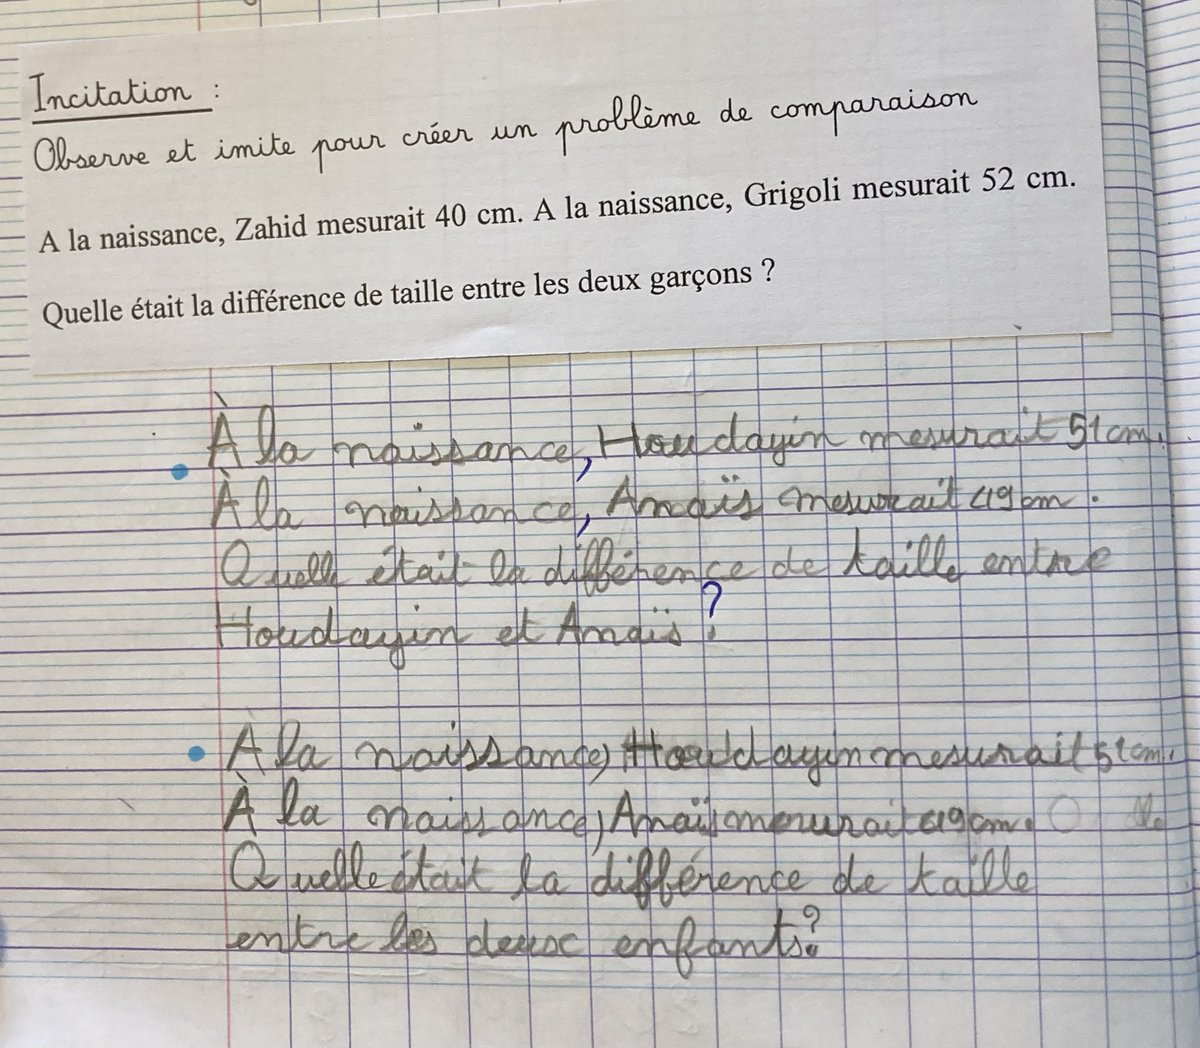 Incitation :
Observe et imite pour créer un problème de comparaison
A la naissance, Zahid mesurait 40 cm. A la naissance, Grigoli mesurait 52 cm.
Quelle était la différence de taille entre les deux garçons ?
À la naissance, Houdayin mesurait 51 cm.
À la naissance, Anaïs mesurait 49 cm.
Quelle était la différence de taille entre
Houdayin et Anaïs ?
À la naissance, Houdayin mesurait 51 cm.
À la naissance, Anaïs mesurait 49 cm.
Quelle était la différence de taille
entre les deux enfants ?